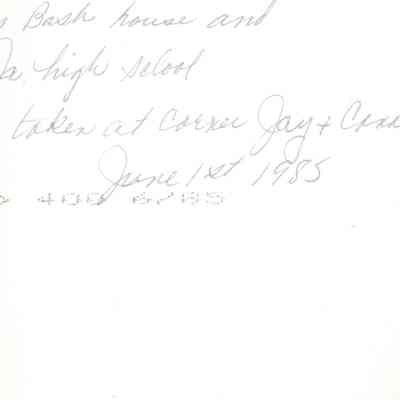 s Bash house and
Ja. high school
taken at Corner Jay + Cona
June 1st 1985
400 6785